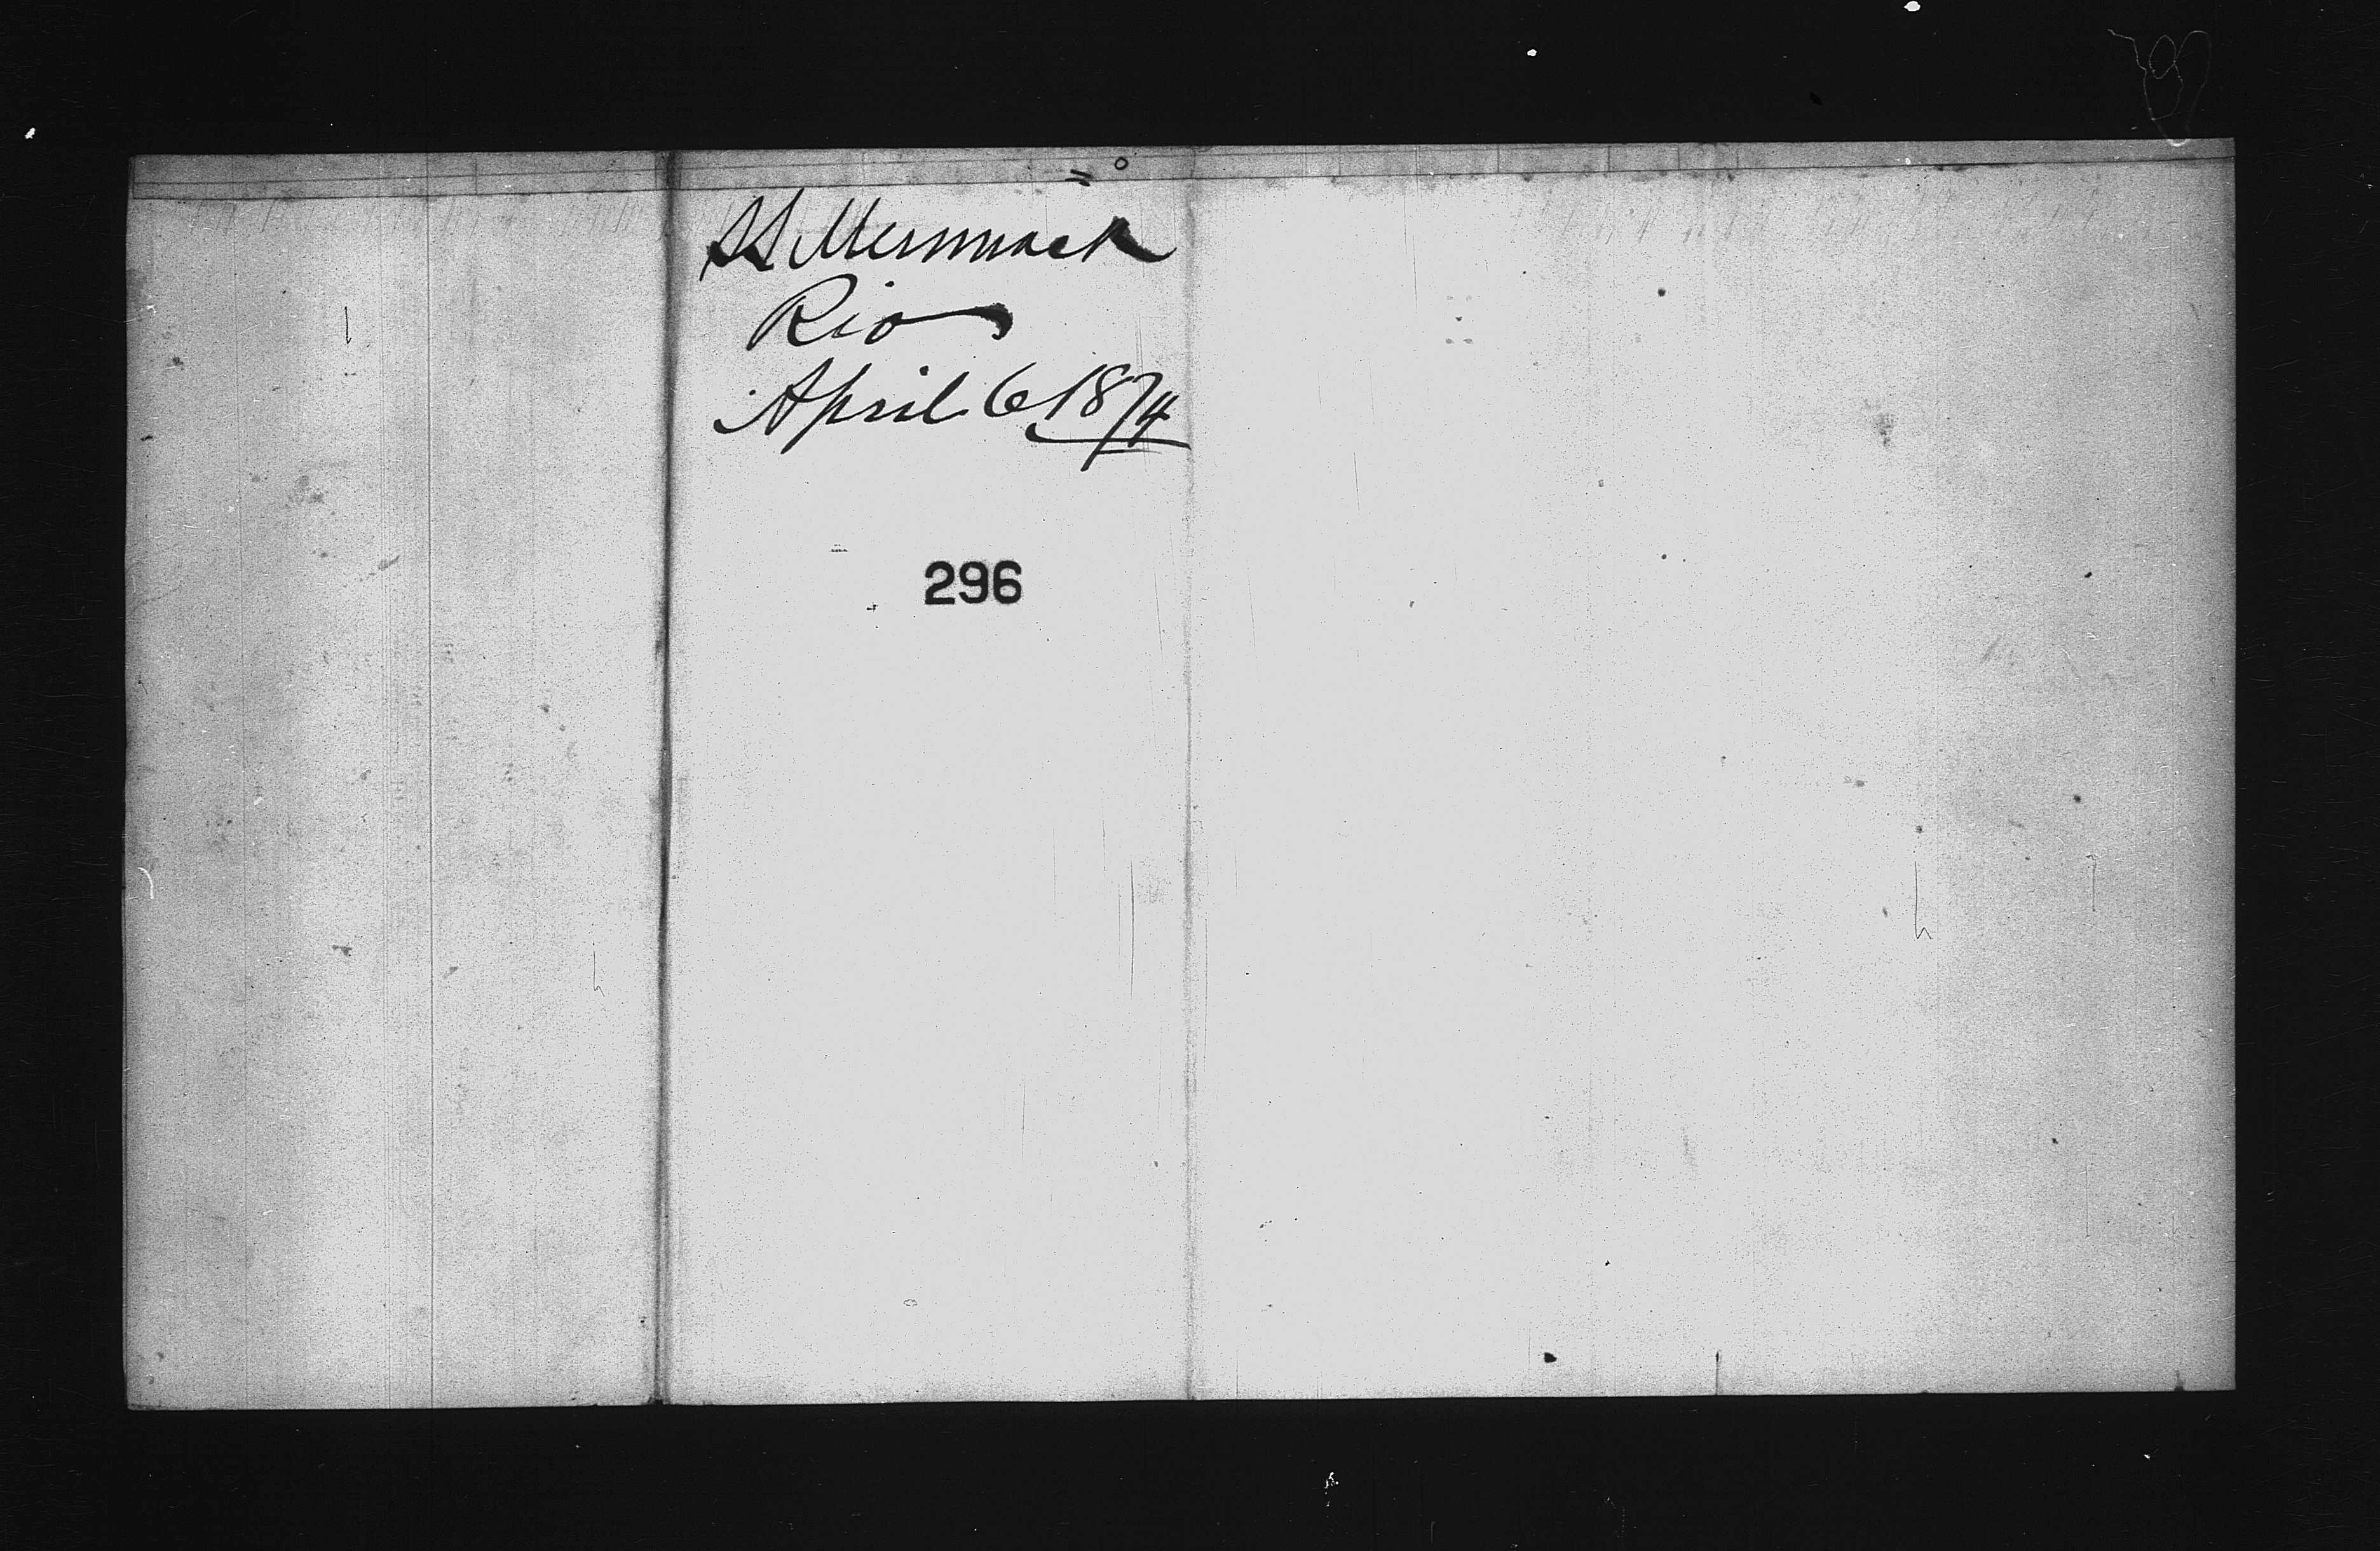 SS Merrimack
Rio
April 6 1874
296